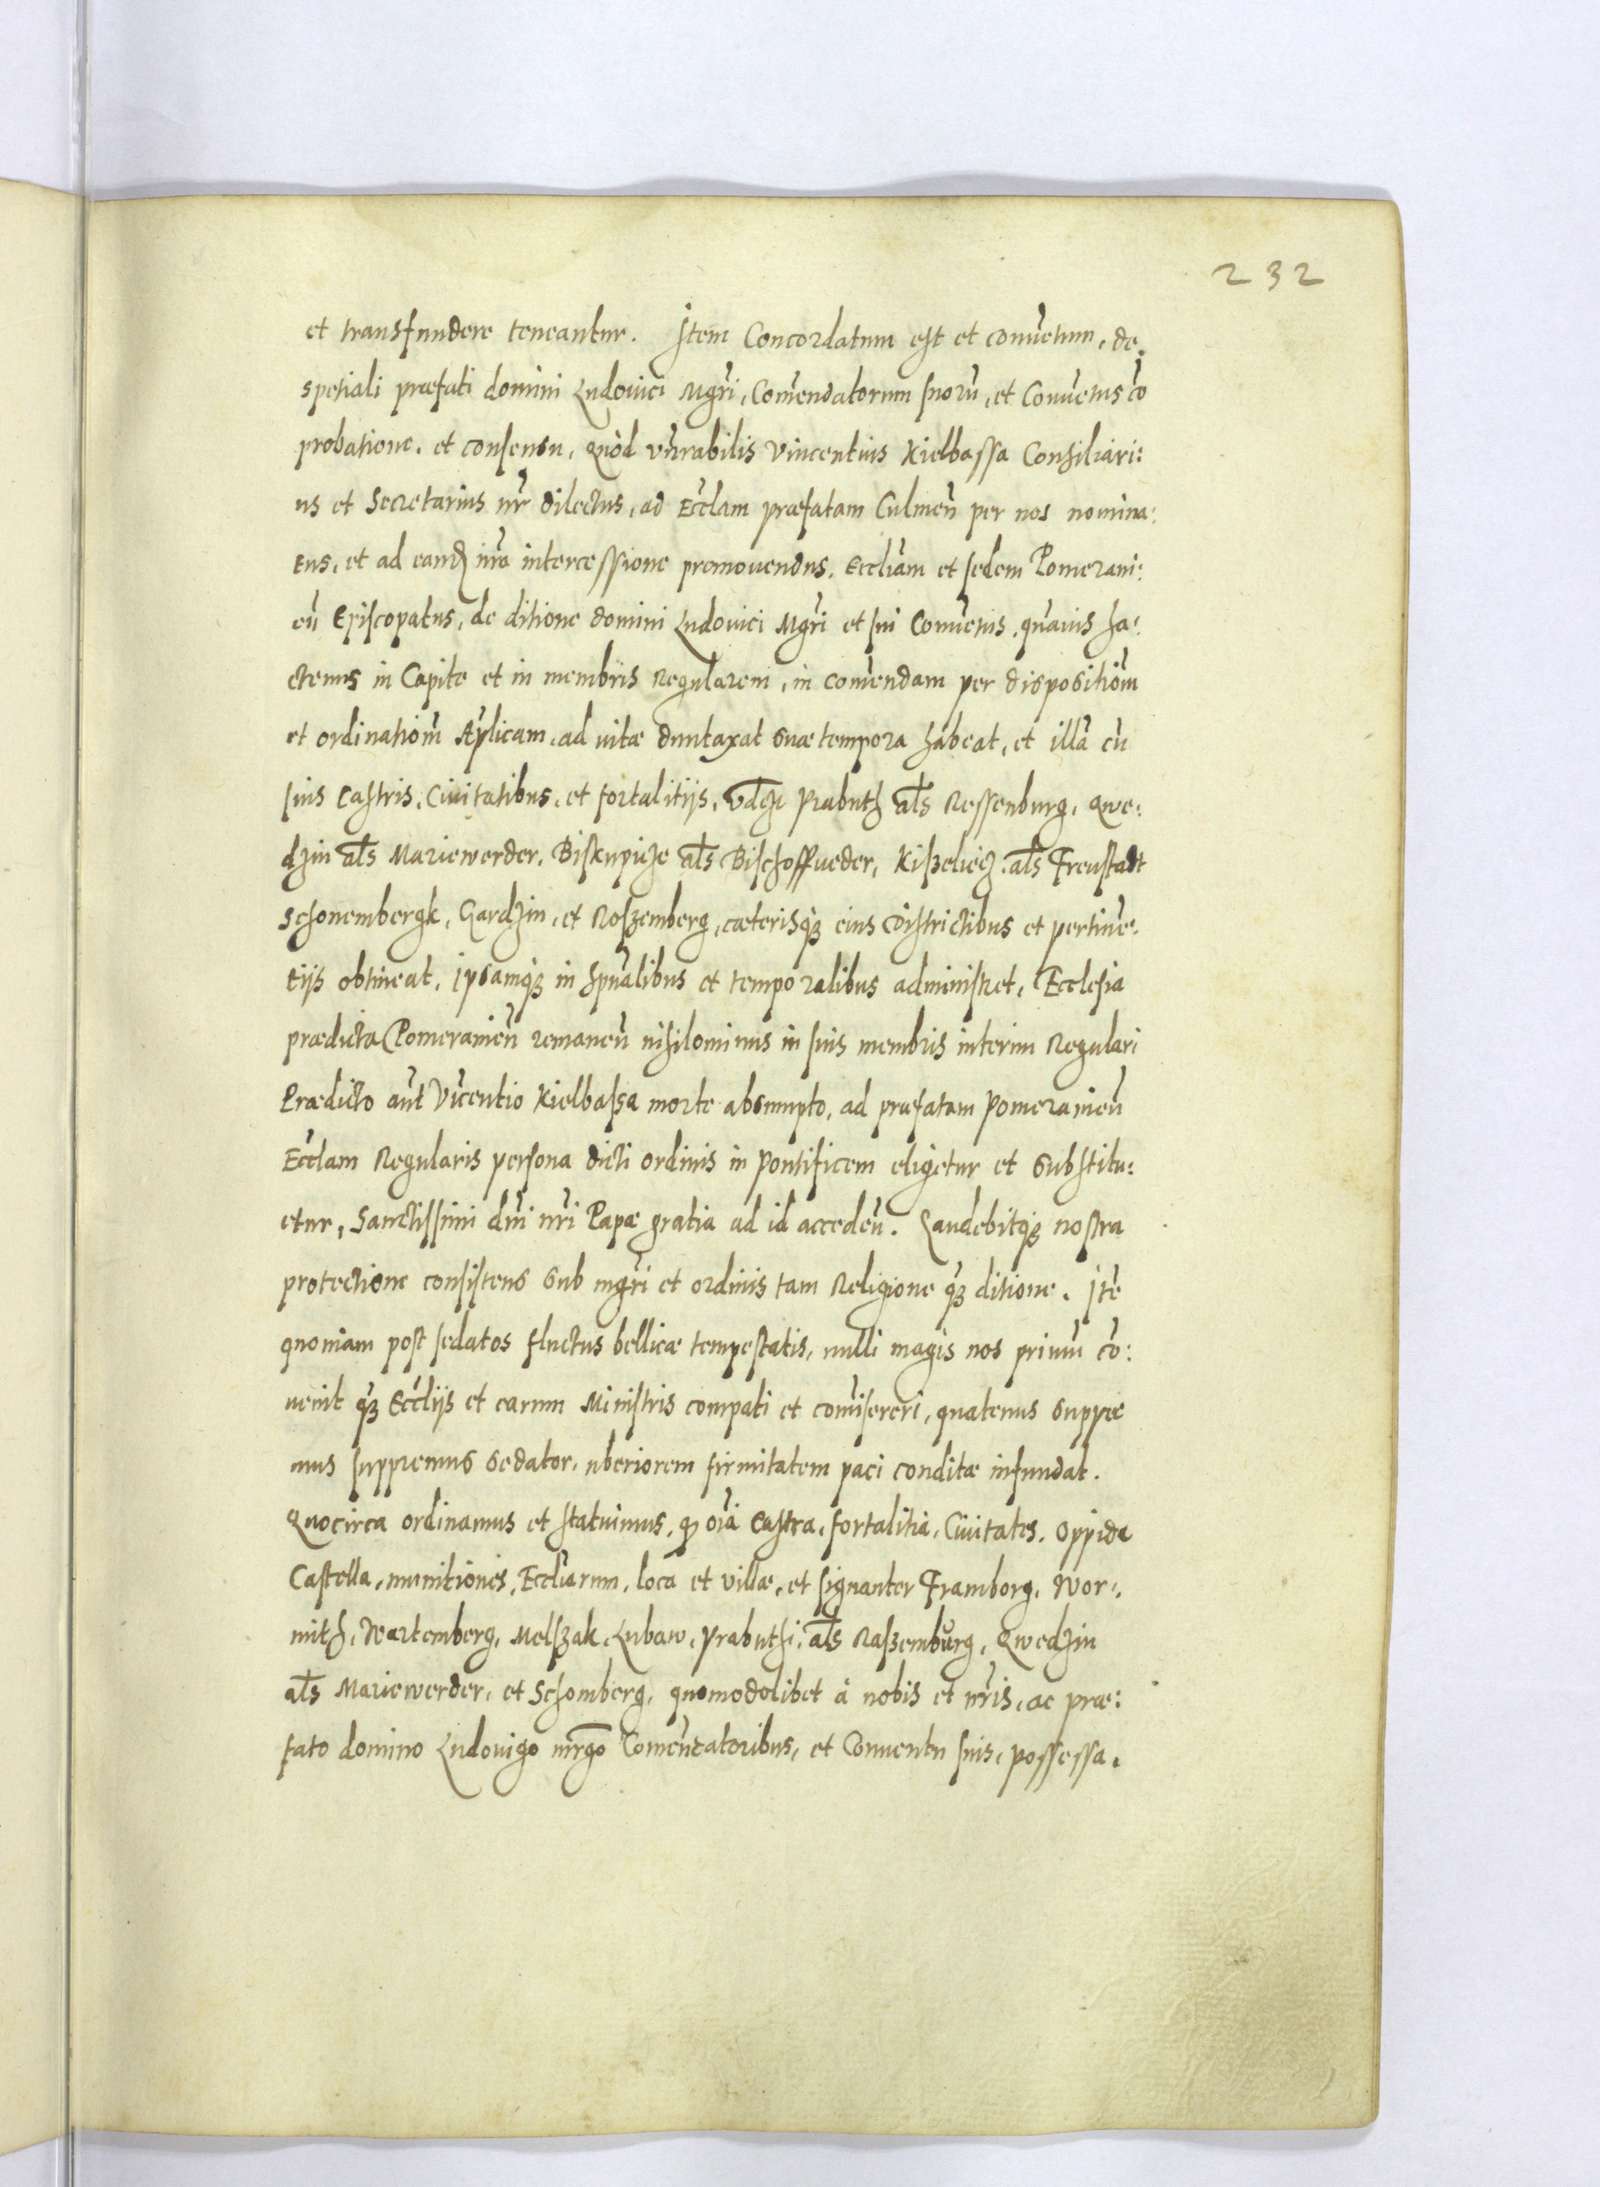 232
et transfundere teneantur. Item Concordatum est et conuētum, de
spetiali præfati domini Ludouici Mgr̄i, Com̄endatorum suorū, et Conuētus cō
probatione. et consensu, Quòd vn̄rabilis Vincentius Kielbassa Consiliari:
us et Secretarius nr̄ dilectus, ad Eccl̄am præfatam Culmen̄ per nos nomina:
tus, et ad eandꝫ nr̄a intercessione promouendus. Eccliām et sedem Pomerani:
en̄ Episcopatus, de ditione domini Ludouici Mgr̄i et sui Conuētus, quāuis ha:
ctenus in Capite et in membris Regularem, in com̄endam per dispositiōm
et ordinatiōm Ap̄licam, ad vitæ duntaxat suæ tempora habeat, et illā cū
suis Castris, Ciuitatibus, et fortalitijs, vdꝫ Prabuth al̄s Ressenburg, Qwe:
dzin al̄s Mariewerder, Biskupicze al̄s Bischoffueder, Kiszeliecz al̄s Freustadt
Schonembergk, Gardzin, et Roszemberg, cæterisqꝫ eius districtibus et pertinē:
tijs obtineat, ipsamqꝫ in sp̄ualibus et temporalibus administret, Ecclesia
prædicta Pomeranien̄ remanen̄ nihilominus in suis membris interim Regulari
Prædicto aūt Vīcentio Kielbassa morte absumpto, ad præfatam Pomeranien̄
Eccl̄am Regularis persona dicti ordinis in pontificem eligetur et substitu:
etur, Sanctissimi dn̄i nr̄i Papæ gratia ad id acceden̄. Gaudebitqꝫ nostra
protectione consistens sub mgr̄i et ordinis tam Religione qꝫ ditione. Itē
quoniam post sedatos fluctus bellicæ tempestatis, nulli magis nos primū cō:
uenit qꝫ Eccl̄ijs et earum Ministris compati et com̄isereri, quatenus suppre
mus suppremus sedator, uberiorem firmitatem paci conditæ infundat.
Quocirca ordinamus et statuimus, qꝫ oīa Castra, fortalitia, Ciuitates, oppida
Castella, munitiones, Eccliārum, loca et villæ, et signanter Framborg, Wor:
mith, Wartemberg, Melszak, Lubaw, Prabuthi, al̄s Raszemburg, Qwedzin
al̄s Mariewerder, et Schomberg, quomodolibet à nobis et nr̄is, ac præ:
fato domino Ludouigo mr̄go Comēdatoribus, et Conuentu suis, possessa.